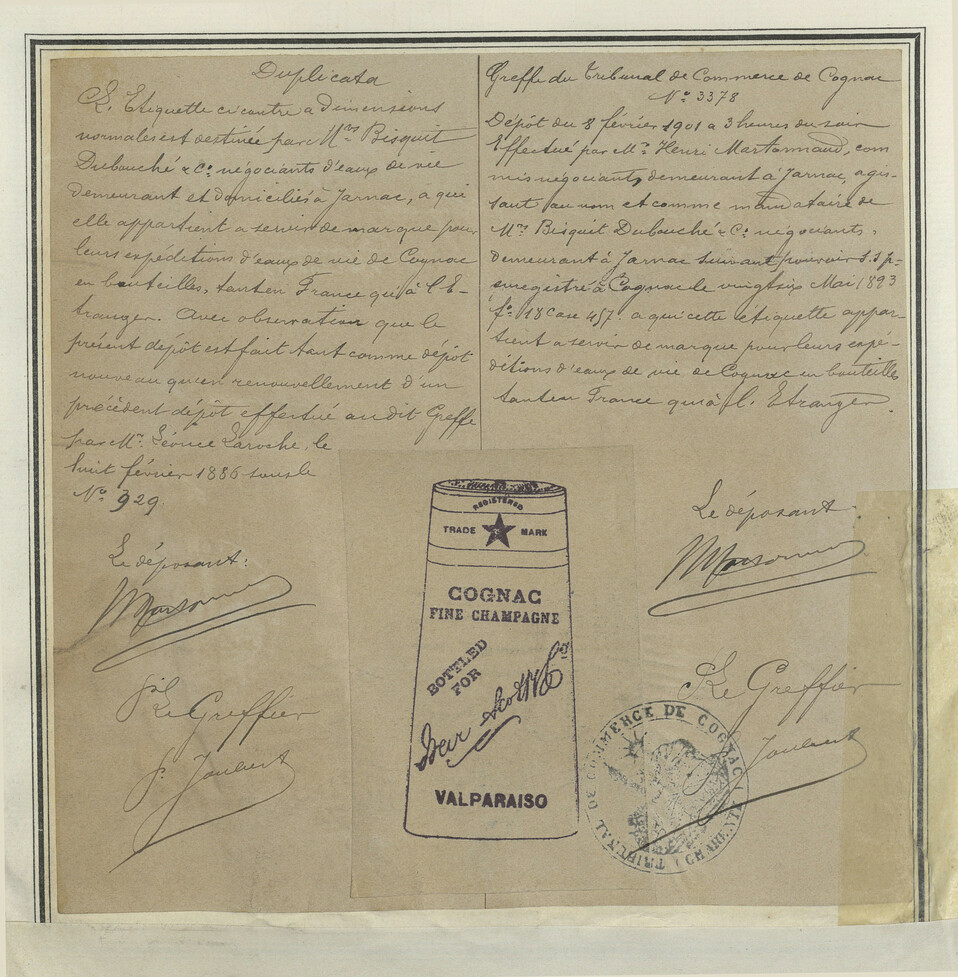 Duplicata
L'Etiquette ci contre a dimensions
normales est destinée par Mrs Bisquit
Dubouché & Co négociants d'eaux de vie
demeurant et domiciliés à Jarnac, à qui
elle appartient a servir de marque pour
leurs expéditions d'eaux de vie de Cognac
en bouteilles, tant en France qu'à l'E-
tranger. Avec observation que le
présent dépôt est fait tant comme dépôt
nouveau qu'en renouvellement d'un
précédent dépôt effectué au dit Greffe
par Mr Léonce Laroche, le
huit février 1886 sous le
No 929
Le déposant:
Le Greffier
Greffe du Tribunal de Commerce de Cognac
No 3378
Dépôt du 8 février 1901 a 3 heures du soir
Effectué par Mr Henri Martonnaud, com
mis négociants, demeurant à Jarnac, agis-
sant au nom et comme mandataire de
Mrs Bisquit Dubouché & Co négociants,
demeurant à Jarnac suivant pouvoir s.s.p.
enregistré à Cognac le vingt six Mai 1893
fo 18 Case 457 a qui cette etiquette appar-
tient a servir de marque pour leurs expé-
ditions d'eaux de vie de Cognac en bouteilles
tant en France qu'à l'Etranger.
Le déposant
Le Greffier
REGISTERED
TRADE MARK
COGNAC
FINE CHAMPAGNE
BOTTLED
FOR
VALPARAISO
TRIBUNAL DE COMMERCE DE COGNAC
(CHARENTE)